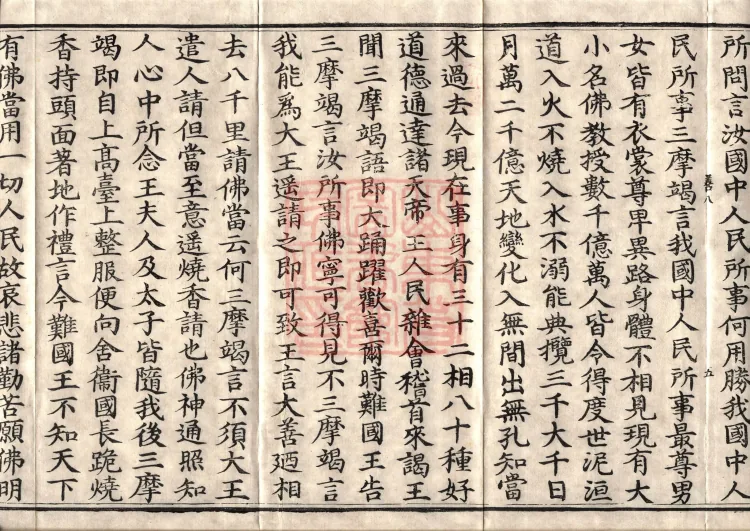 所問言汝國中人民所事何用勝我國中人
民所事三摩竭言我國中人民所事最尊男
善八 五
女皆有衣裳尊卑異路身體不相見現有大
小名佛教授數千億萬人皆令得度世泥洹
道入火不燒入水不溺能典攬三千大千日
月萬二千億天地變化入無間出無孔知當
來過去今現在事身有三十二相八十種好
道德通達諸天帝王人民雜會稽首來謁王
聞三摩竭語即大踊躍歡喜爾時難國王告
三摩竭言汝所事佛寧可得見不三摩竭言
我能為大王遥請之即可致王言大善廼相
去八千里請佛當云何三摩竭言不須大王
遣人請但當至意遥燒香請也佛神通照知
人心中所念王夫人及太子皆隨我後三摩
竭即自上髙臺上整服便向舍衞國長跪燒
香持頭面著地作禮言今難國王不知天下
有佛當用一切人民故哀悲諸勤苦願佛明